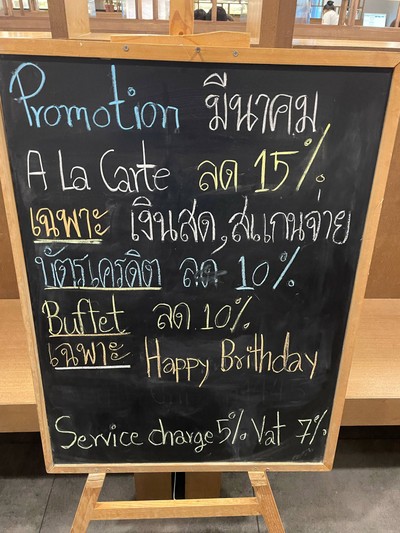 Promotion มีนาคม
A La Carte ลด 15%
เฉพาะ เงินสด,สแกนจ่าย
บัตรเครดิต ลด 10%
Buffet ลด 10%
เฉพาะ Happy Brithday
Service charge 5% Vat 7%